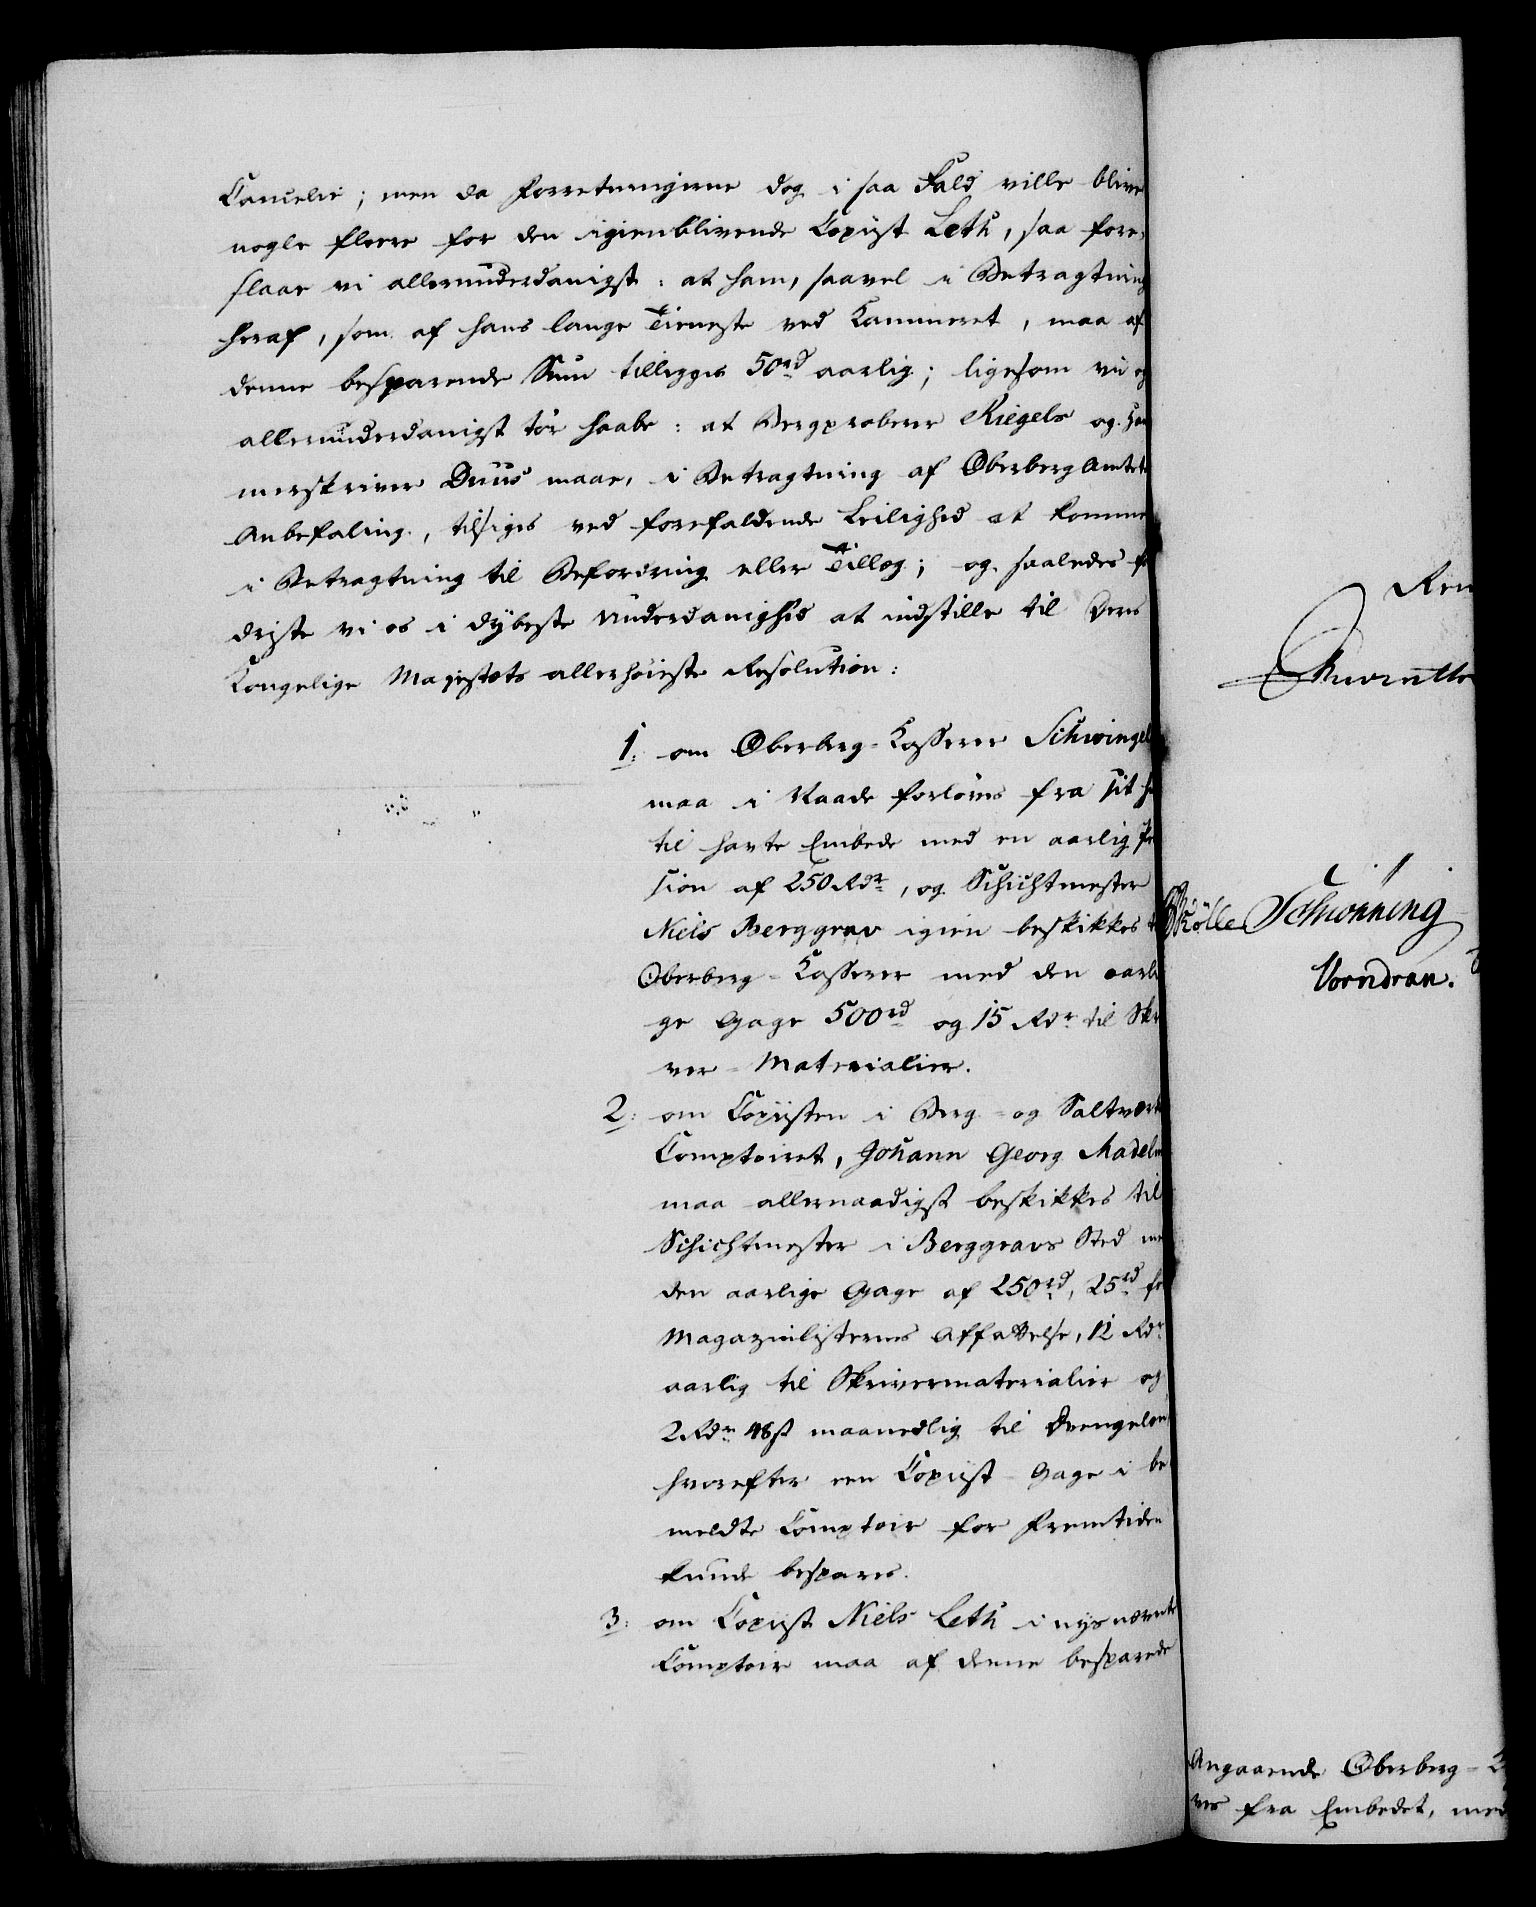 Cancelie; men da Forretningerne dog i saa Fald ville blive
nogle fleere for den igienblivende Copiist Leth, saa fore-
slaae vi allerunderdanigst: at ham, saavel i Betragtning
heraf, som af hans lange Tieneste ved Kammeret, maa af
denne besparende Sum tillegges 50rd aarlig; ligesom vi og
allerunderdanigst tør haabe: at Bergproberer Riegels og
merskriver Duus maae, i Betragtning af OberbergAmtets
Anbefaling, tilsiges ved forefaldende Leilighed at komme
i Betragtning til Befordring eller Tillæg; og saaledes
driste vi os i dybeste Underdanighed at indstille til Deres
Kongelige Majestæts allerhøieste Resolution:
1: om Oberberg-Kasserer Schwingel
maa i Naade forløves fra sit
til havte Embede med en aarlig
sion af 250 Rdr, og Schichtmester
Niels Berggrav igien beskikkes
Oberberg-Kasserer med den aarli
ge Gage 500rd og 15 Rdr til Skri
ver-Materialier.
2: om Copiisten i Berg- og Saltværks
Comptoiret, Johann Georg Madel
maa allernaadigst beskikkes til
Schichtmester i Berggravs Sted
den aarlige Gage af 250rd, 25rd for
Magazinlisternes Affattelse, 12 Rdr
aarlig til Skrivermaterialier og
2 Rdr 48 s maanedlig til Drengeløn
hvorefter een Copiist-Gage i be
meldte Comptoir for Fremtiden
kunde bespares.
3: om Copiist Niels Leth i nysnævnte
Comptoir maa af denne besparede
Ren
Schwønning
Vorndran.
Angaaende Oberberg-
ves fra Embedet, med